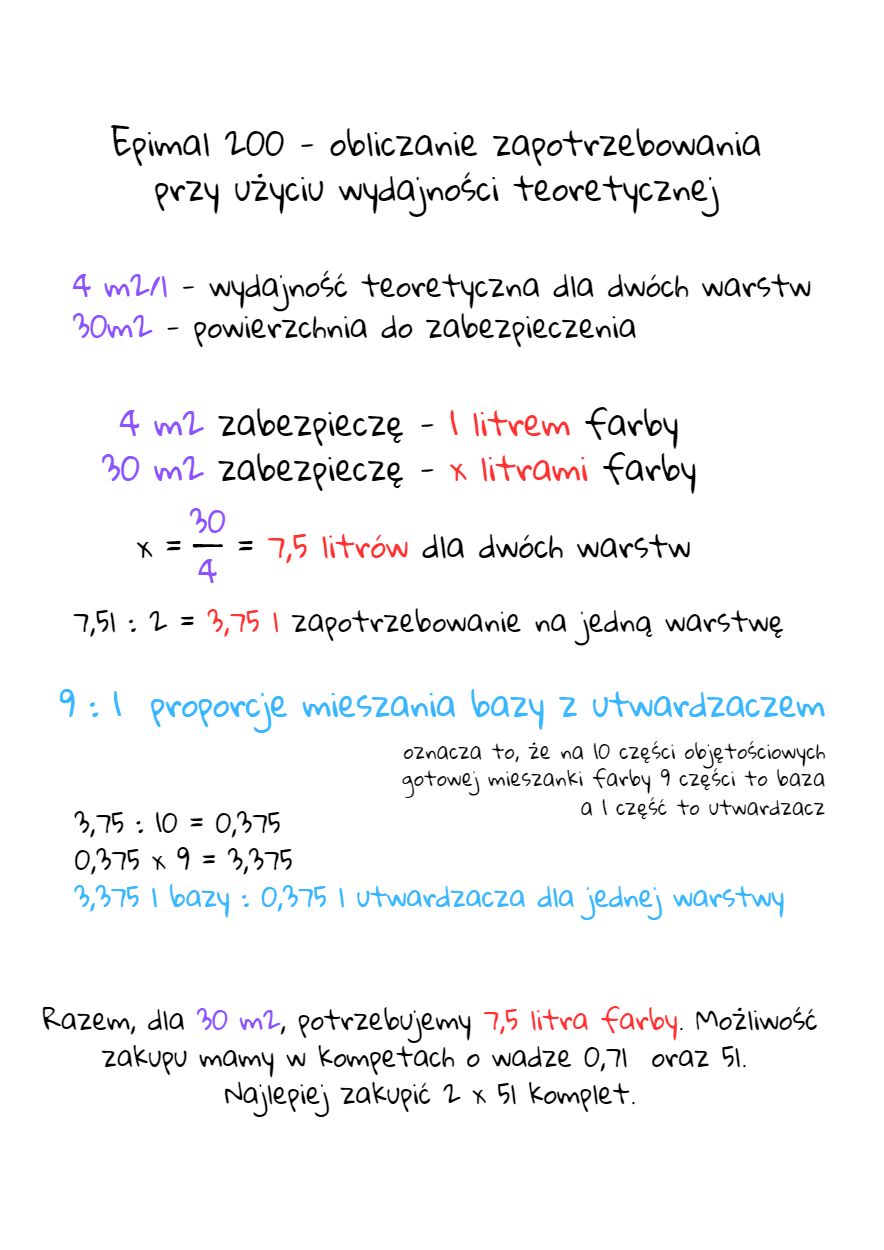 Epimal 200 - obliczanie zapotrzebowania
przy użyciu wydajności teoretycznej
4 m2/l - wydajność teoretyczna dla dwóch warstw
30m2 - powierzchnia do zabezpieczenia
4 m2 zabezpieczę - 1 litrem farby
30 m2 zabezpieczę - x litrami farby
x = 30/4 = 7,5 litrów dla dwóch warstw
7,5l : 2 = 3,75 l zapotrzebowanie na jedną warstwę
9 : 1 proporcje mieszania bazy z utwardzaczem
oznacza to, że na 10 części objętościowych
gotowej mieszanki farby 9 części to baza
a 1 część to utwardzacz
3,75 : 10 = 0,375
0,375 x 9 = 3,375
3,375 l bazy : 0,375 l utwardzacza dla jednej warstwy
Razem, dla 30 m2, potrzebujemy 7,5 litra farby. Możliwość
zakupu mamy w kompetach o wadze 0,7l oraz 5l.
Najlepiej zakupić 2 x 5l komplet.